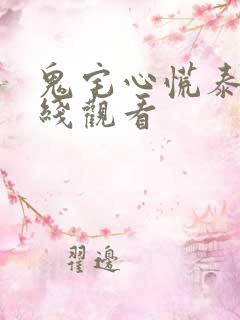 鬼宅心慌泰
綫觀看
翟邊